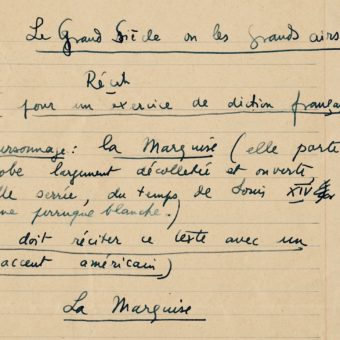 Le Grand Siècle ou les grands airs
Récit
pour un exercice de diction français
ersonnage : la Marquise (elle porte
obe largement décolletée et ouverte
lle serrée, du temps de Louis XIV
ne perruque blanche.)
doit réciter ce texte avec un
accent américain)
La Marquise